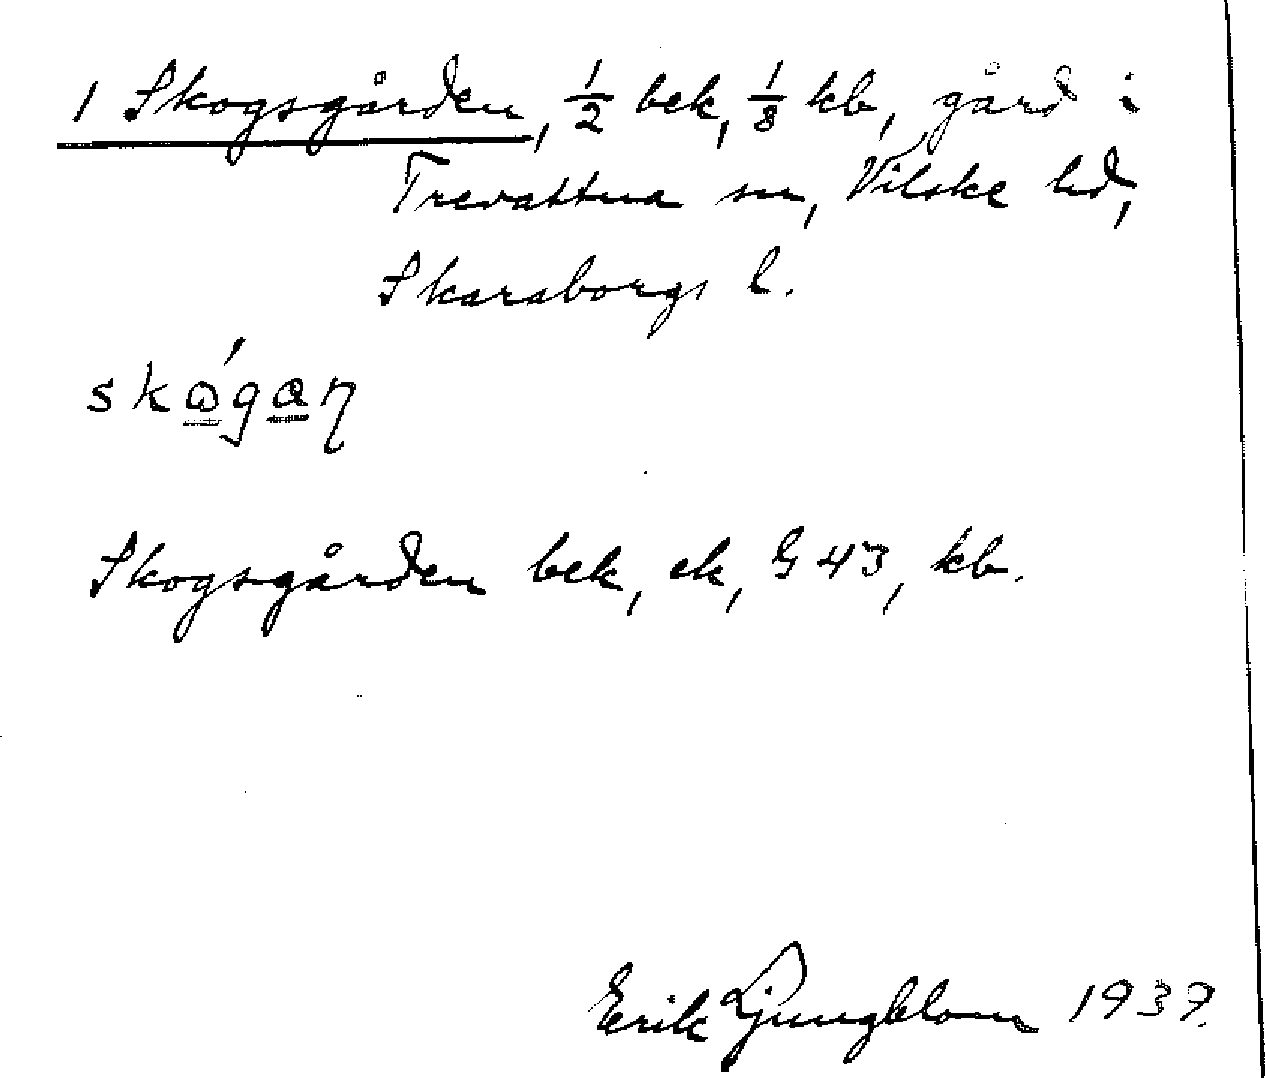 1 Skogsgården, 1/2 bek, 1/8 kb, gård i
Trevattna sn, Vilske hd,
Skaraborgs l.
skɷ́gaɳ
Skogsgården bek, ek, G 43, kb.
Erik Ljungblom 1939.